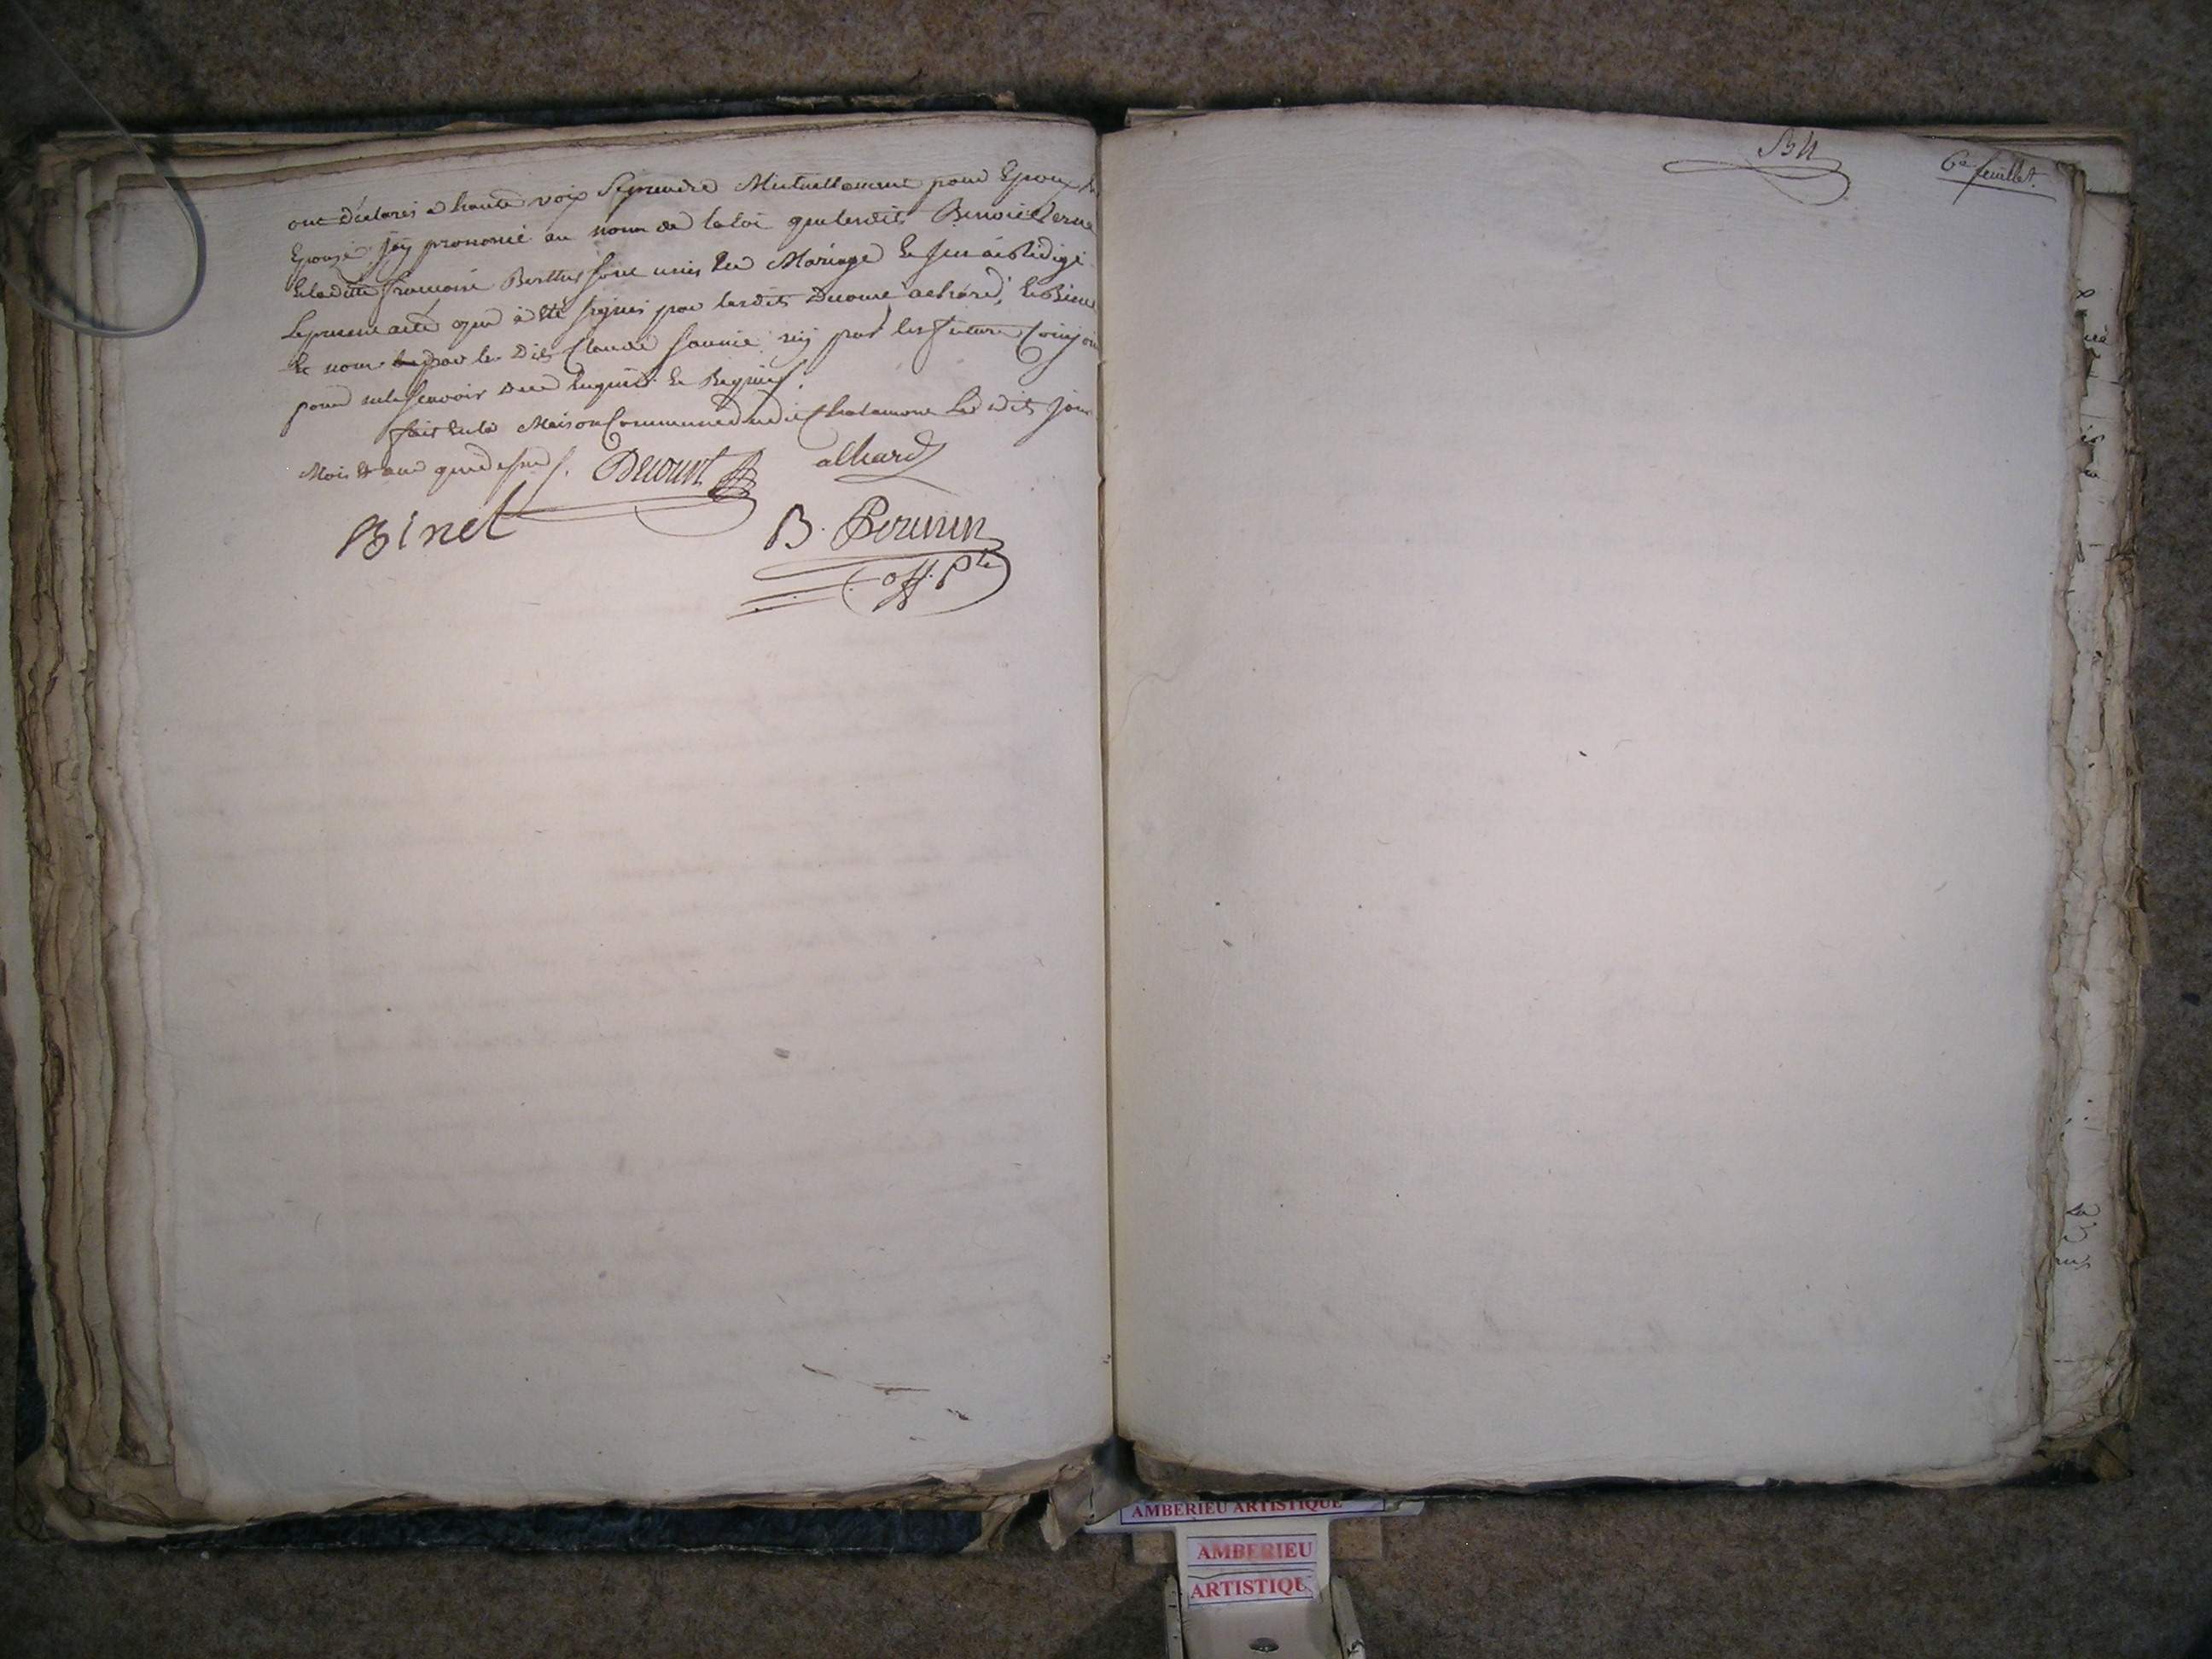 ont déclarés a haute voix Se prendre Mutuellement pour Epoux &
Epouze, J'ay prononcé au nom de la loi que lesdits Benoit
& la ditte francoise Berthet sont unis En Mariage & J'en ai Rédigé
Le present acte qui à été signés par lesdits Ducourt achard, & Binet
Et non par les Dits Claude ny par les futurs Conjoin
pour ne le scavoir De ce Enquis & Requis.
fait En la Maison Commune dudit Chatamont Les dits Jour
Mois & an que dessus. Ducourt achard
Binet B. Perunin
off. p.
6e feuillet.
AMBERIEU ARTISTIQUE
AMBERIEU
ARTISTIQU